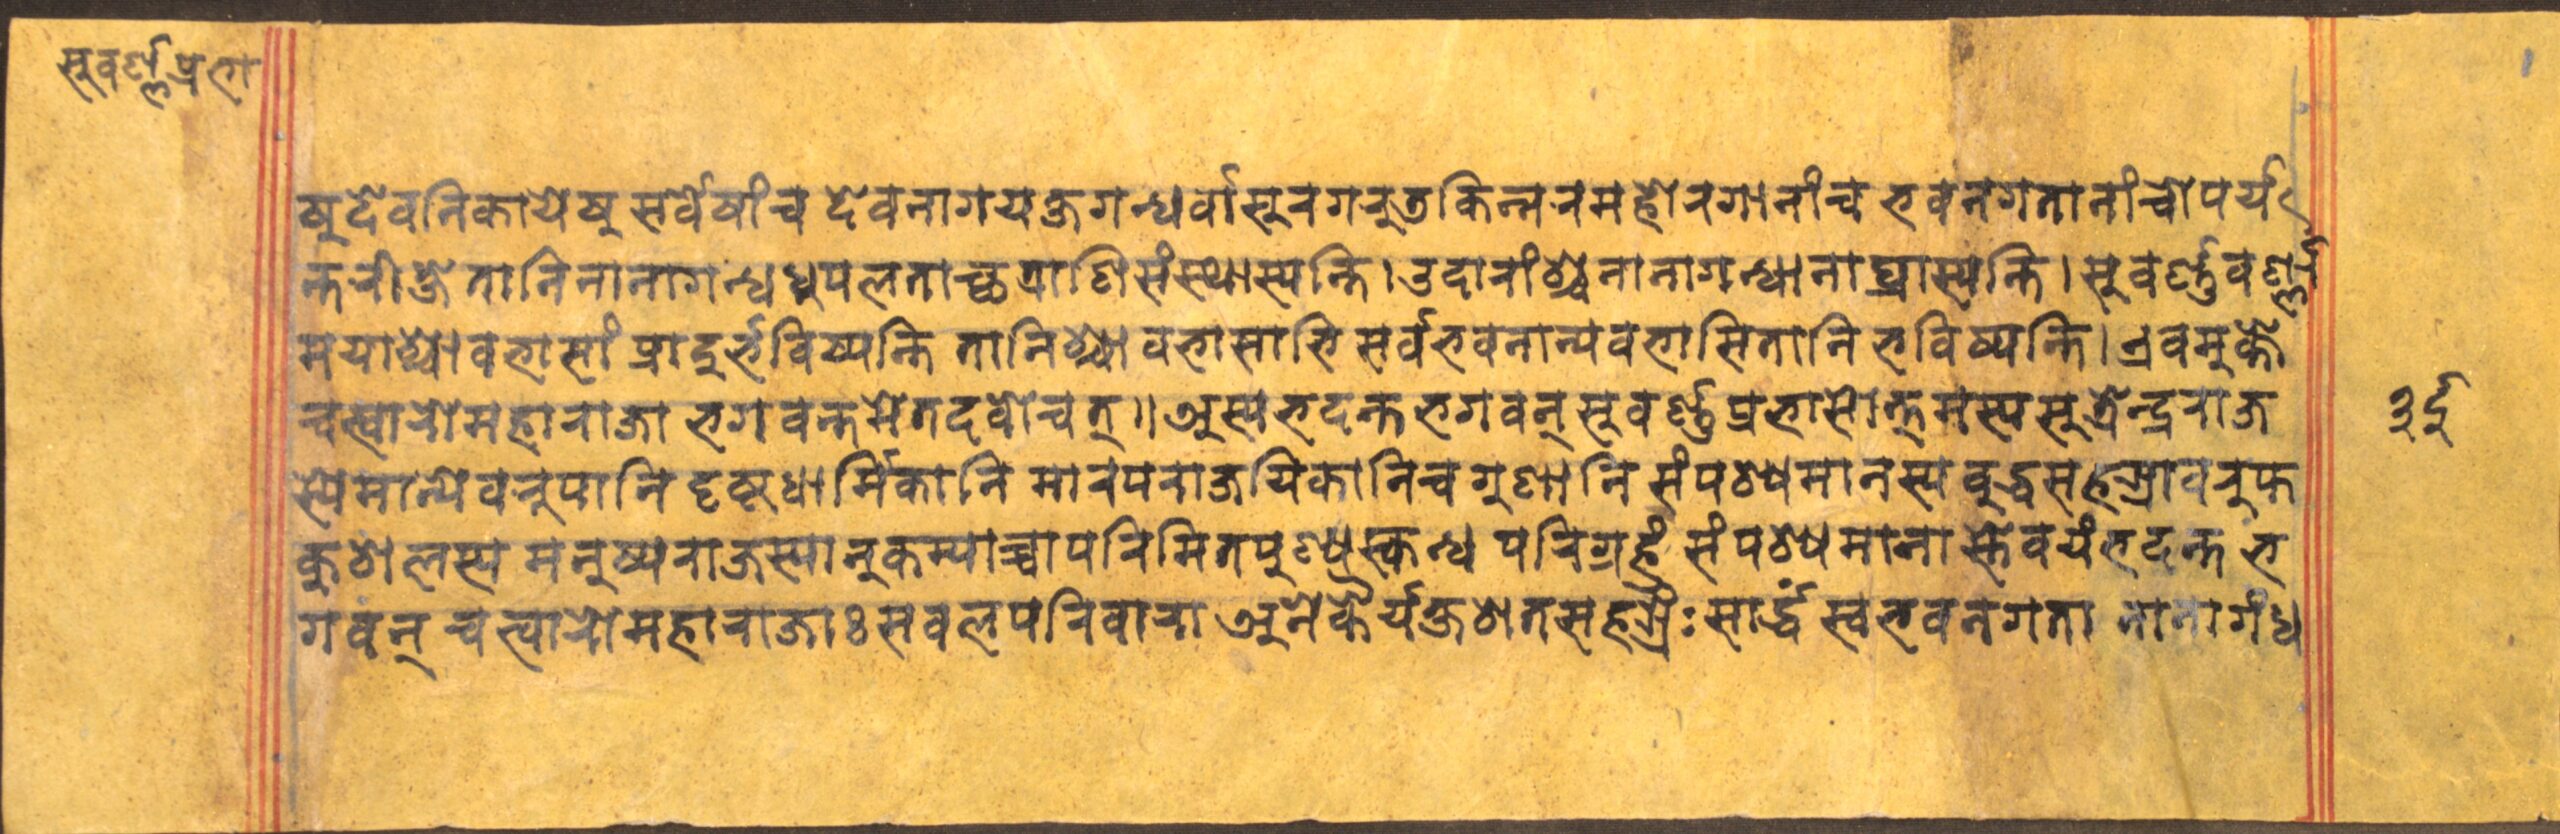 सुवर्ण्णप्रभा
षुदेवनिकायेषु सर्वेषांच देवनागयक्षगन्धर्वासुरगरुडकिन्नरमहोरगानांच भवनगतानांचोपर्य
न्तरीक्षेतानिनानागन्धधुपलताच्छत्राणिसंस्थास्यन्ति।उदारांश्चनानागन्धानाघ्रास्यन्ति।सुवर्ण्णवर्ण्ण
मयाश्चावभासां प्रादुर्भविष्यन्ति तानिश्चावभासाभि सर्वभवनान्यवभासितानि भविष्यन्ति।एवमुक्ते
चत्वारोमहाराजा भगवन्तमेतदवोचत्॥अस्यभदन्तभगवन् सुवर्ण्णप्रभासोत्तमस्यसुत्रेन्द्रराज
स्येमान्येवरुपानि दृष्टधार्मिकानि मारपराजयिकानिच गुणानि संपश्यमानस्य बुद्धसहस्रावरुप्त
कुशलस्य मनुष्यराजस्यानुकम्पाच्चापरिमितपुण्यस्कन्ध परिग्रहं संपश्यमाना स्तेवयंभदन्त भ
गवन् चत्वारोमहाराजाः सबलपरिवारा अनेकैर्यक्षशतसहस्रैः सार्द्धं स्वभवनगता नानागंध